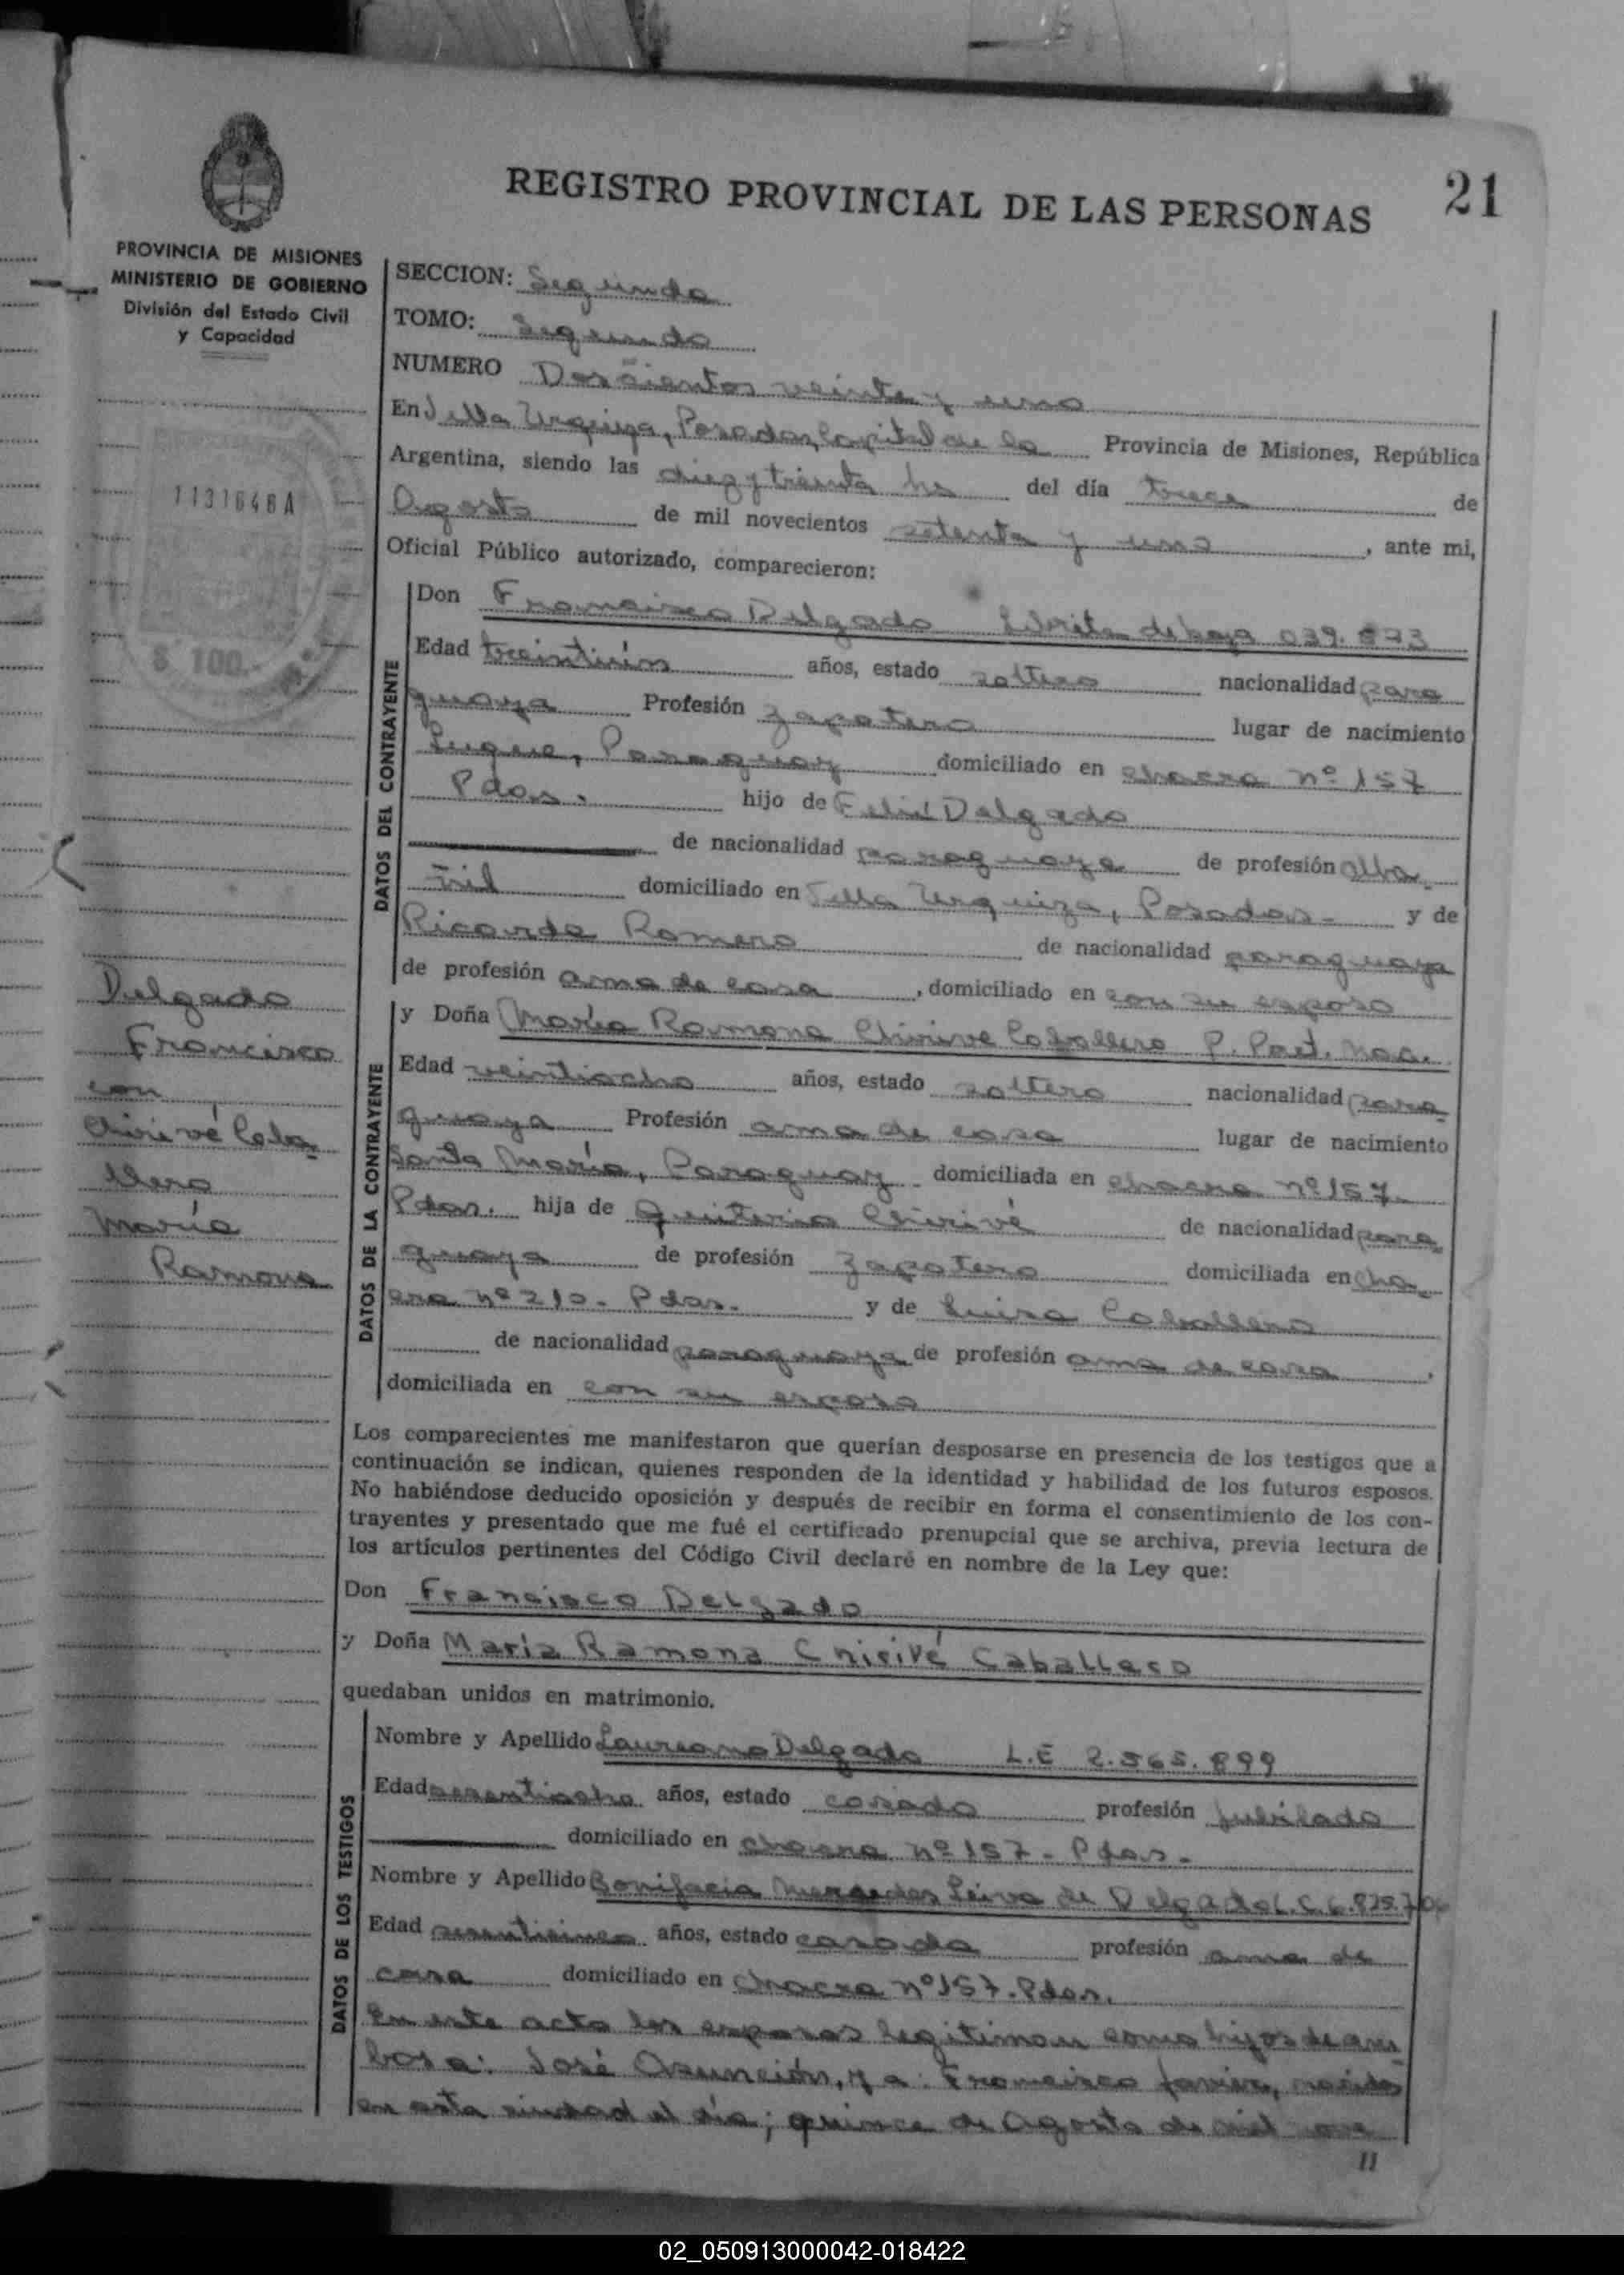 REGISTRO PROVINCIAL DE LAS PERSONAS
21
PROVINCIA DE MISIONES
MINISTERIO DE GOBIERNO
División del Estado Civil
y Capacidad
1131646A
$ 100.-
Delgado
Francisco
con
Chirivé Caba
llero
María
Ramona
SECCION: Segunda
TOMO: Segundo
NUMERO Doscientos veinte y uno
En Villa Urquiza, Posadas, Capital de la Provincia de Misiones, República
Argentina, siendo las diez y treinta hs del día trece de
Agosto de mil novecientos setenta y uno, ante mi,
Oficial Público autorizado, comparecieron:
DATOS DEL CONTRAYENTE
Don Francisco Delgado Libreta de baja 039.
Edad treintiún años, estado soltero nacionalidad para
guaya Profesión zapatero lugar de nacimiento
Luque, Paraguay domiciliado en chacra nº 157
Pdas. hijo de Delgado
de nacionalidad paraguaya de profesión alba
ñil domiciliado en Villa Urquiza, Posadas- y de
Ricarda Romero de nacionalidad paraguaya
de profesión ama de casa, domiciliado en con su esposo
DATOS DE LA CONTRAYENTE
y Doña María Ramona Chirivé Caballero P.
Edad veintiocho años, estado soltera nacionalidad para
guaya Profesión ama de casa lugar de nacimiento
Santa María, Paraguay domiciliada en chacra nº 157.
Pdas. hija de Quiterio Chirivé de nacionalidad para
guaya de profesión zapatero domiciliada en cha
cra nº 210- Pdas. y de Luisa Caballero
de nacionalidad paraguaya de profesión ama de casa,
domiciliada en con su esposo
Los comparecientes me manifestaron que querían desposarse en presencia de los testigos que a
continuación se indican, quienes responden de la identidad y habilidad de los futuros esposos.
No habiéndose deducido oposición y después de recibir en forma el consentimiento de los con-
trayentes y presentado que me fué el certificado prenupcial que se archiva, previa lectura de
los artículos pertinentes del Código Civil declaré en nombre de la Ley que:
Don Francisco Delgado
y Doña María Ramona Chirivé Caballero
quedaban unidos en matrimonio.
DATOS DE LOS TESTIGOS
Nombre y Apellido Laureano Delgado L.E 2.565.899
Edad sesentiocho años, estado casado profesión jubilado
domiciliado en chacra nº 157- Pdas-
Nombre y Apellido Bonifacia Mercedes Leiva de Delgado L.C. 6.825.706
Edad sesenticinco años, estado casada profesión ama de
casa domiciliado en chacra nº 157. Pdas.
En este acto los esposos legitiman como hijos de am
bos a: José Asunción, y a: Francisco Javier, nacidos
en esta ciudad el día; quince de Agosto de mil nove
//
02_050913000042-018422